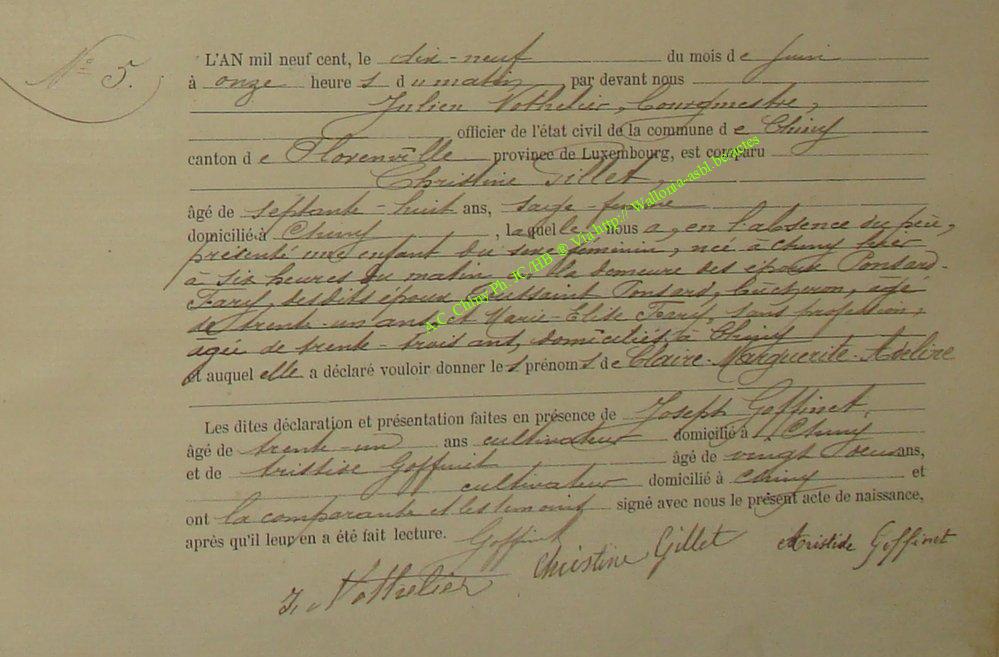 N° 5.
L'AN mil neuf cent, le dix-neuf du mois de Juin
à onze heures du matin par devant nous
Julien Nothelier, Bourgmestre,
officier de l'état civil de la commune de Chiny
canton de Florenville province de Luxembourg, est comparu
Christine Gillet,
âgé de septante-huit ans, sage-femme
domicilié à Chiny, laquelle nous a, en l'absence du père,
présenté une enfant du sexe féminin, née à Chiny hier
à six heures du matin en la demeure des époux Ponsard-
Ferry, desdits époux Toussaint Ponsard, bûcheron, âgé
de trente-un ans et Marie-Elise Ferry, sans profession,
âgée de trente-trois ans, domiciliés à Chiny
et auquel elle a déclaré vouloir donner les prénoms de Claire-Marguerite-Adeline
Les dites déclaration et présentation faites en présence de Joseph Goffinet,
âgé de trente-un ans cultivateur domicilié à Chiny
et de Aristide Goffinet âgé de vingt deux ans,
cultivateur domicilié à Chiny et
ont la comparante et les témoins signé avec nous le présent acte de naissance,
après qu'il leur en a été fait lecture. Goffinet
J. Nothelier Christine Gillet Aristide Goffinet
A.C. Chiny Ph. JC/HB ® Via http:// Wallonia-asbl.be/actes